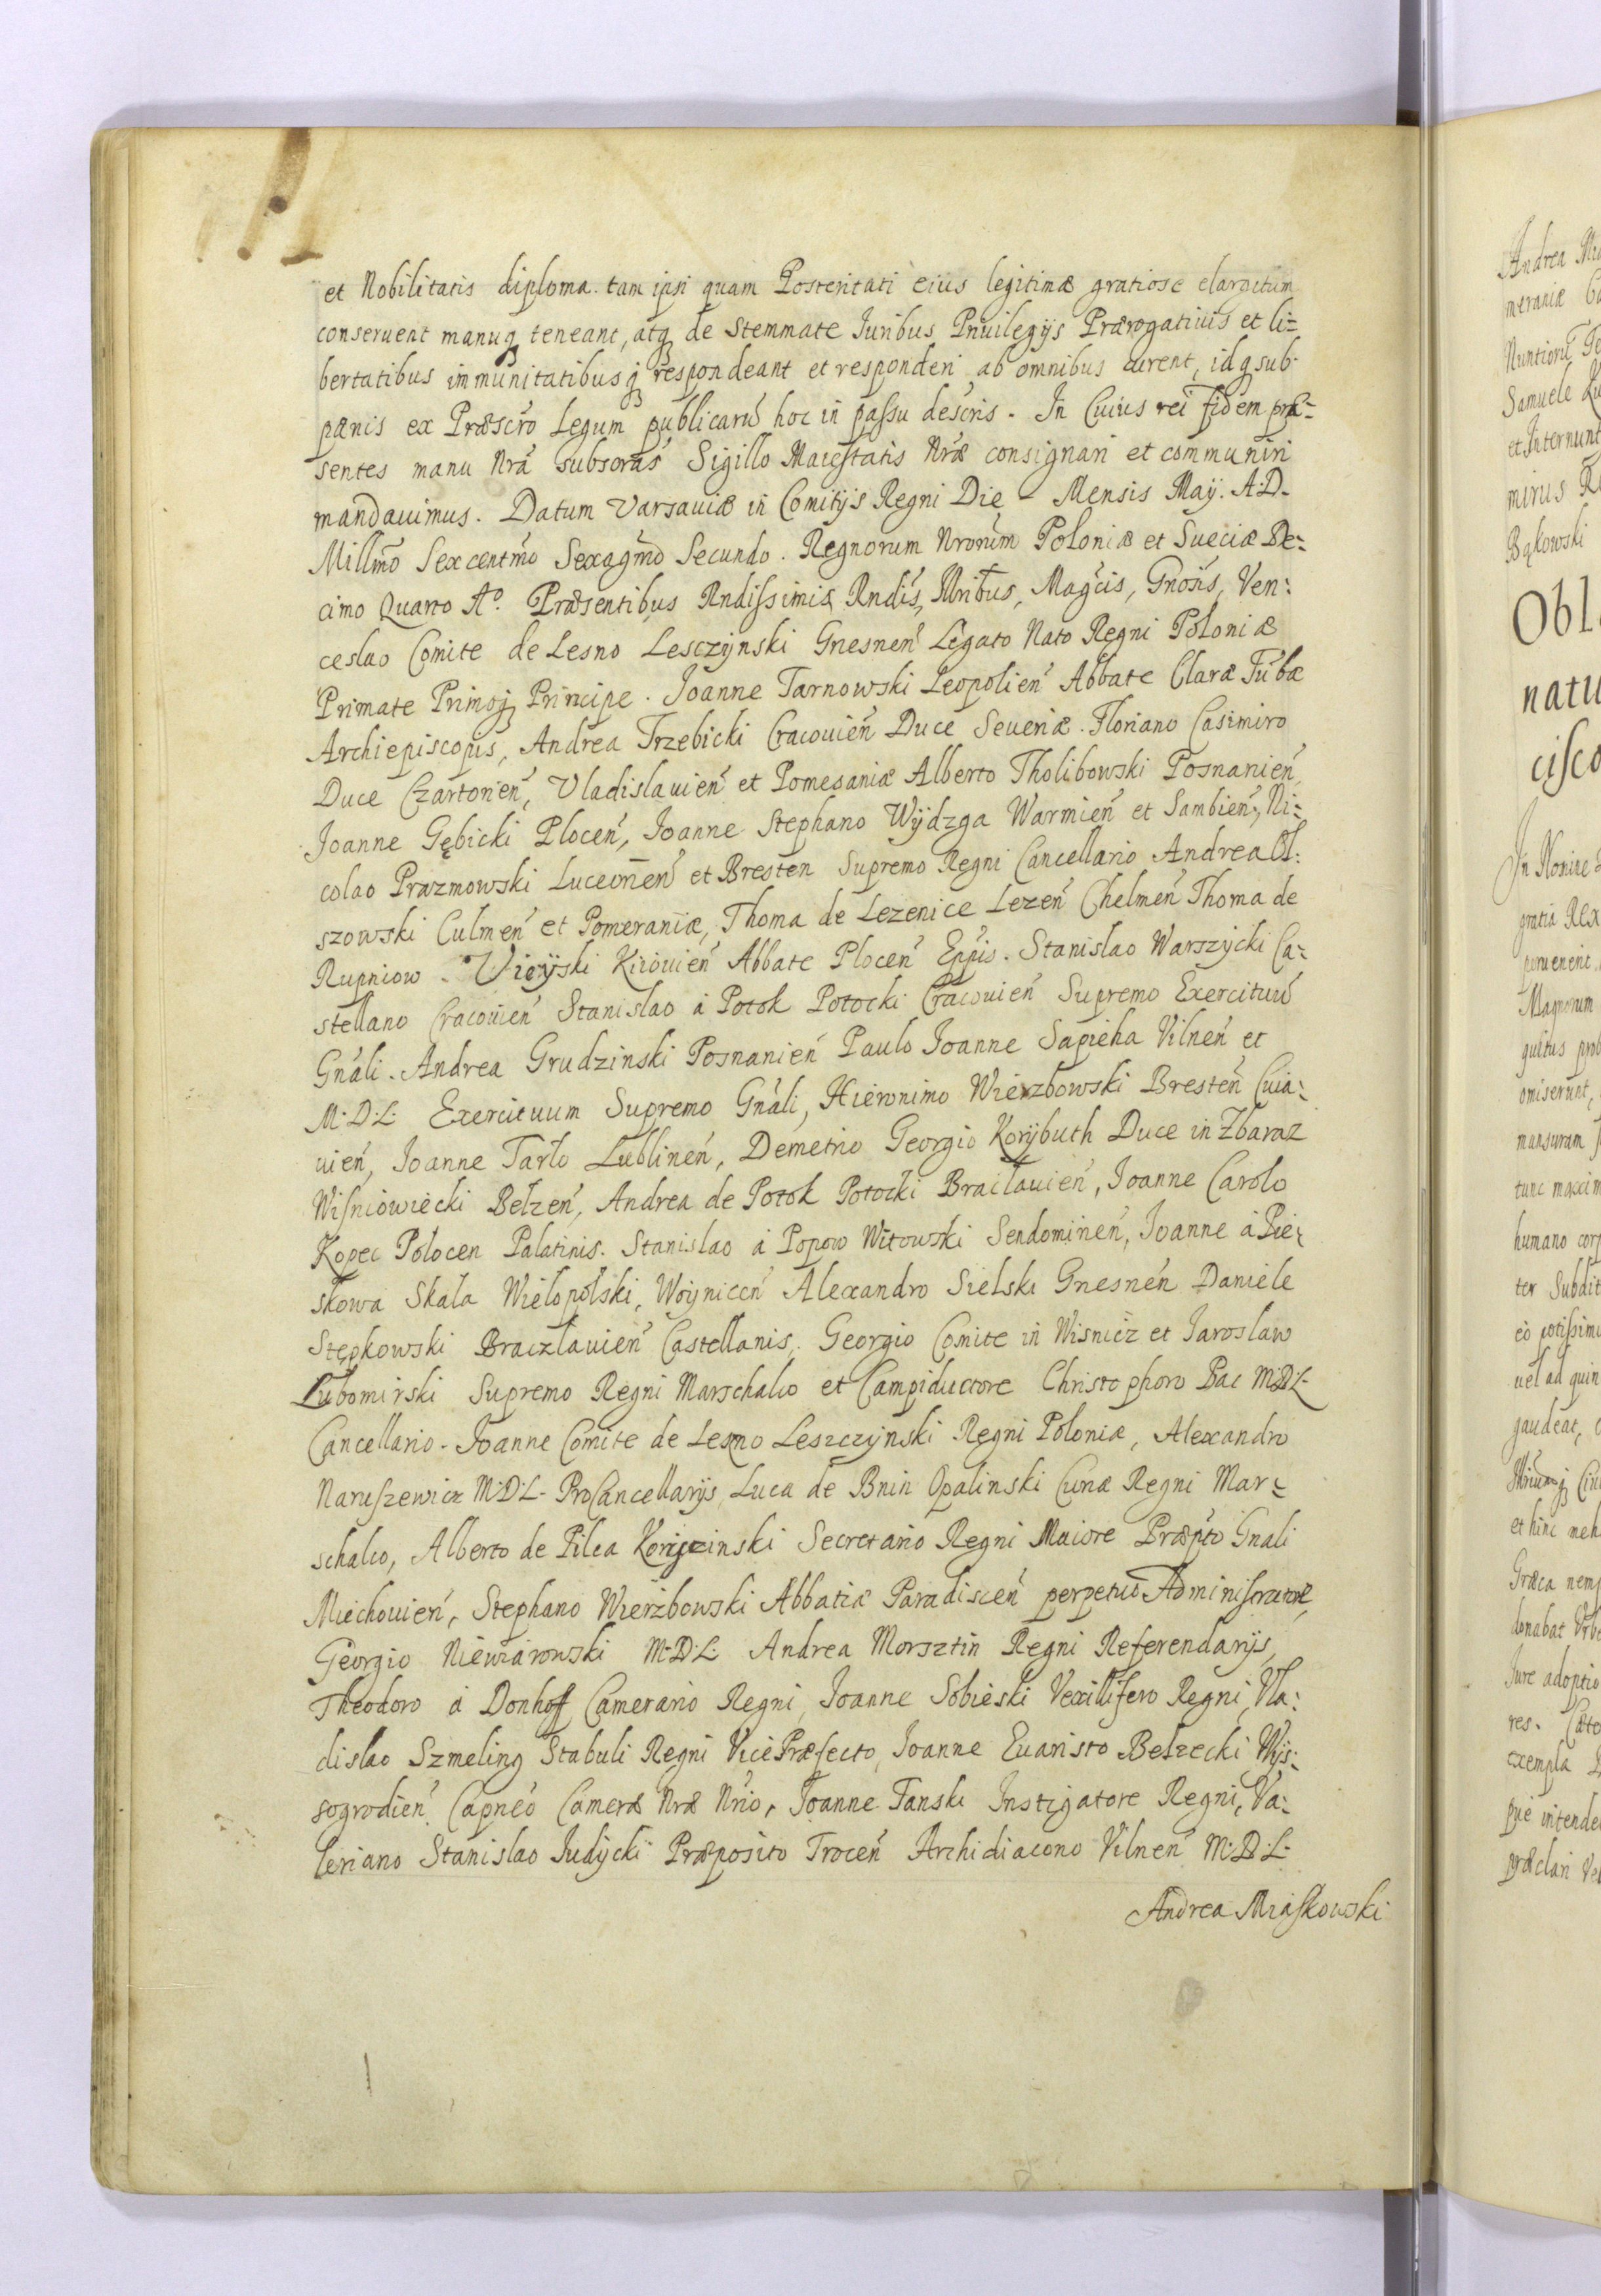 et Nobilitatis diploma tam ipsi quam Posteritati eius legitimæ gratiose elargitum
conseruent manuq teneant, atq de Stemmate Iuribus Priuilegijs Prærogatiuis et li=
bertatibus immunitatibusq respondeant et responderi ab omnibus curent, idq sub
pænis ex Præscro Legum publicarū hoc in passu descris. In Cuius rei fidem præ=
sentes manu Nrā subscras Sigillo Maiestatis Nræ consignari et communiri
mandauimus. Datum Varsauiæ in Comitijs Regni Die - Mensis Maÿ. A:D.
Millmō Sexcentmō Sexagmō Secundo. Regnorum Nrorum Poloniæ et Sueciæ De=
cimo Quarto Aº. Præsentibus Rndissimis Rndis, Illribus, Magcis, Gnosis, Ven:
ceslao Comite de Lesno Lesczÿnski Gnesnen Legato Nato Regni Poloniæ
Primate Primoq Principe. Ioanne Tarnowski Leopolien Abbate Claræ Tubæ
Archiepiscopis, Andrea Trzebicki Cracouien Duce Seueriæ. Floriano Casimiro
Duce Czartorien, Vladislauien et Pomesaniæ Alberto Tholibowski Posnanien
Joanne Gębicki Plocen, Joanne Stephano Wÿdzga Warmien et Sambien, Ni=
colao Prazmowski Luceorien et Bresten Supremo Regni Cancellario Andrea Ol:
szowski Culmen et Pomeraniæ, Thoma de Lezenice Lezen Chelmen Thoma de
Rupniow. Vieÿski Kiiouien Abbate Plocen Eppis. Stanislao Warszÿcki Ca=
stellano Cracouien Stanislao à Potok Potocki Cracouien Supremo Exercituū
Gnáli. Andrea Grudzinski Posnanien Paulo Joanne Sapieha Vilnen et
M:D:L: Exercituum Supremo Gnáli, Hieronimo Wierzbowski Bresten Cuia=
uien, Ioanne Tarło Lublinen, Demetrio Georgio Korÿbuth Duce in Zbaraz
Wisniowiecki Bełzen, Andrea de Potok Potocki Bracłauien, Joanne Carolo
Kopec Polocen Palatinis. Stanislao à Popow Witowski Sendomirien, Joanne à Pie=
skowa Skala Wielopolski, Woynicen Alexandro Sielski Gnesnen Daniele
Stępkowski Braczlauien Castellanis, Georgio Comite in Wisnicz et Iaroslaw
Lubomirski Supremo Regni Marschalco et Campiductore Christophoro Pac M:D:L
Cancellario. Joanne Comite de Lezno Leszczÿnski Regni Poloniæ, Alexandro
Naruszewicz M:D:L. ProCancellarijs, Luca de Bnin Opalinski Curiæ Regni Mar=
schalco, Alberto de Pilca Korÿczinski Secretario Regni Maiore Præpto Gnali
Miechouien, Stephano Wierzbowski Abbatiæ Paradiscen perpetuo Administratore,
Georgio Niewiarowski M:D:L: Andrea Morsztin Regni Referendarijs,
Theodoro à Donhoff Camerario Regni, Joanne Sobieski Vexillifero Regni, Vla=
dislao Szmeling Stabuli Regni VicePræfecto, Joanne Euaristo Bełzecki Wÿs=
sogrodien Capneo Cameræ Nræ Nrio, Joanne Tanski Instigatore Regni, Va=
leriano Stanislao Iudÿcki Præposito Trocen Archidiacono Vilnen M:D:L
Andrea Miaskowski
Andrea
meraniæ
Nuntiorū
Samuele
et Internunt
mirus
Bąkowski
Obl
natu
cisco
In Nomine
gratia Rex
peruenerit
Magnorum
omiserunt,
mansuram
tunc maxim
humano corp
ter Subdit
eò potissimu
uel ad quin
gaudeat,
et hinc
Græca nemp
donabat Vrb
Iure adoptio
res.
exempla
præclari